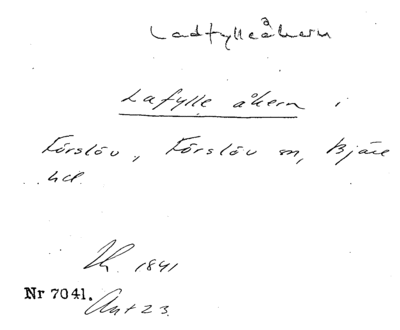 Ladfylleåkern
Lafylle åkern i
Förslöv, Förslöv sn, Bjäre
hd.
1841
Nr 7041. Ant 23.